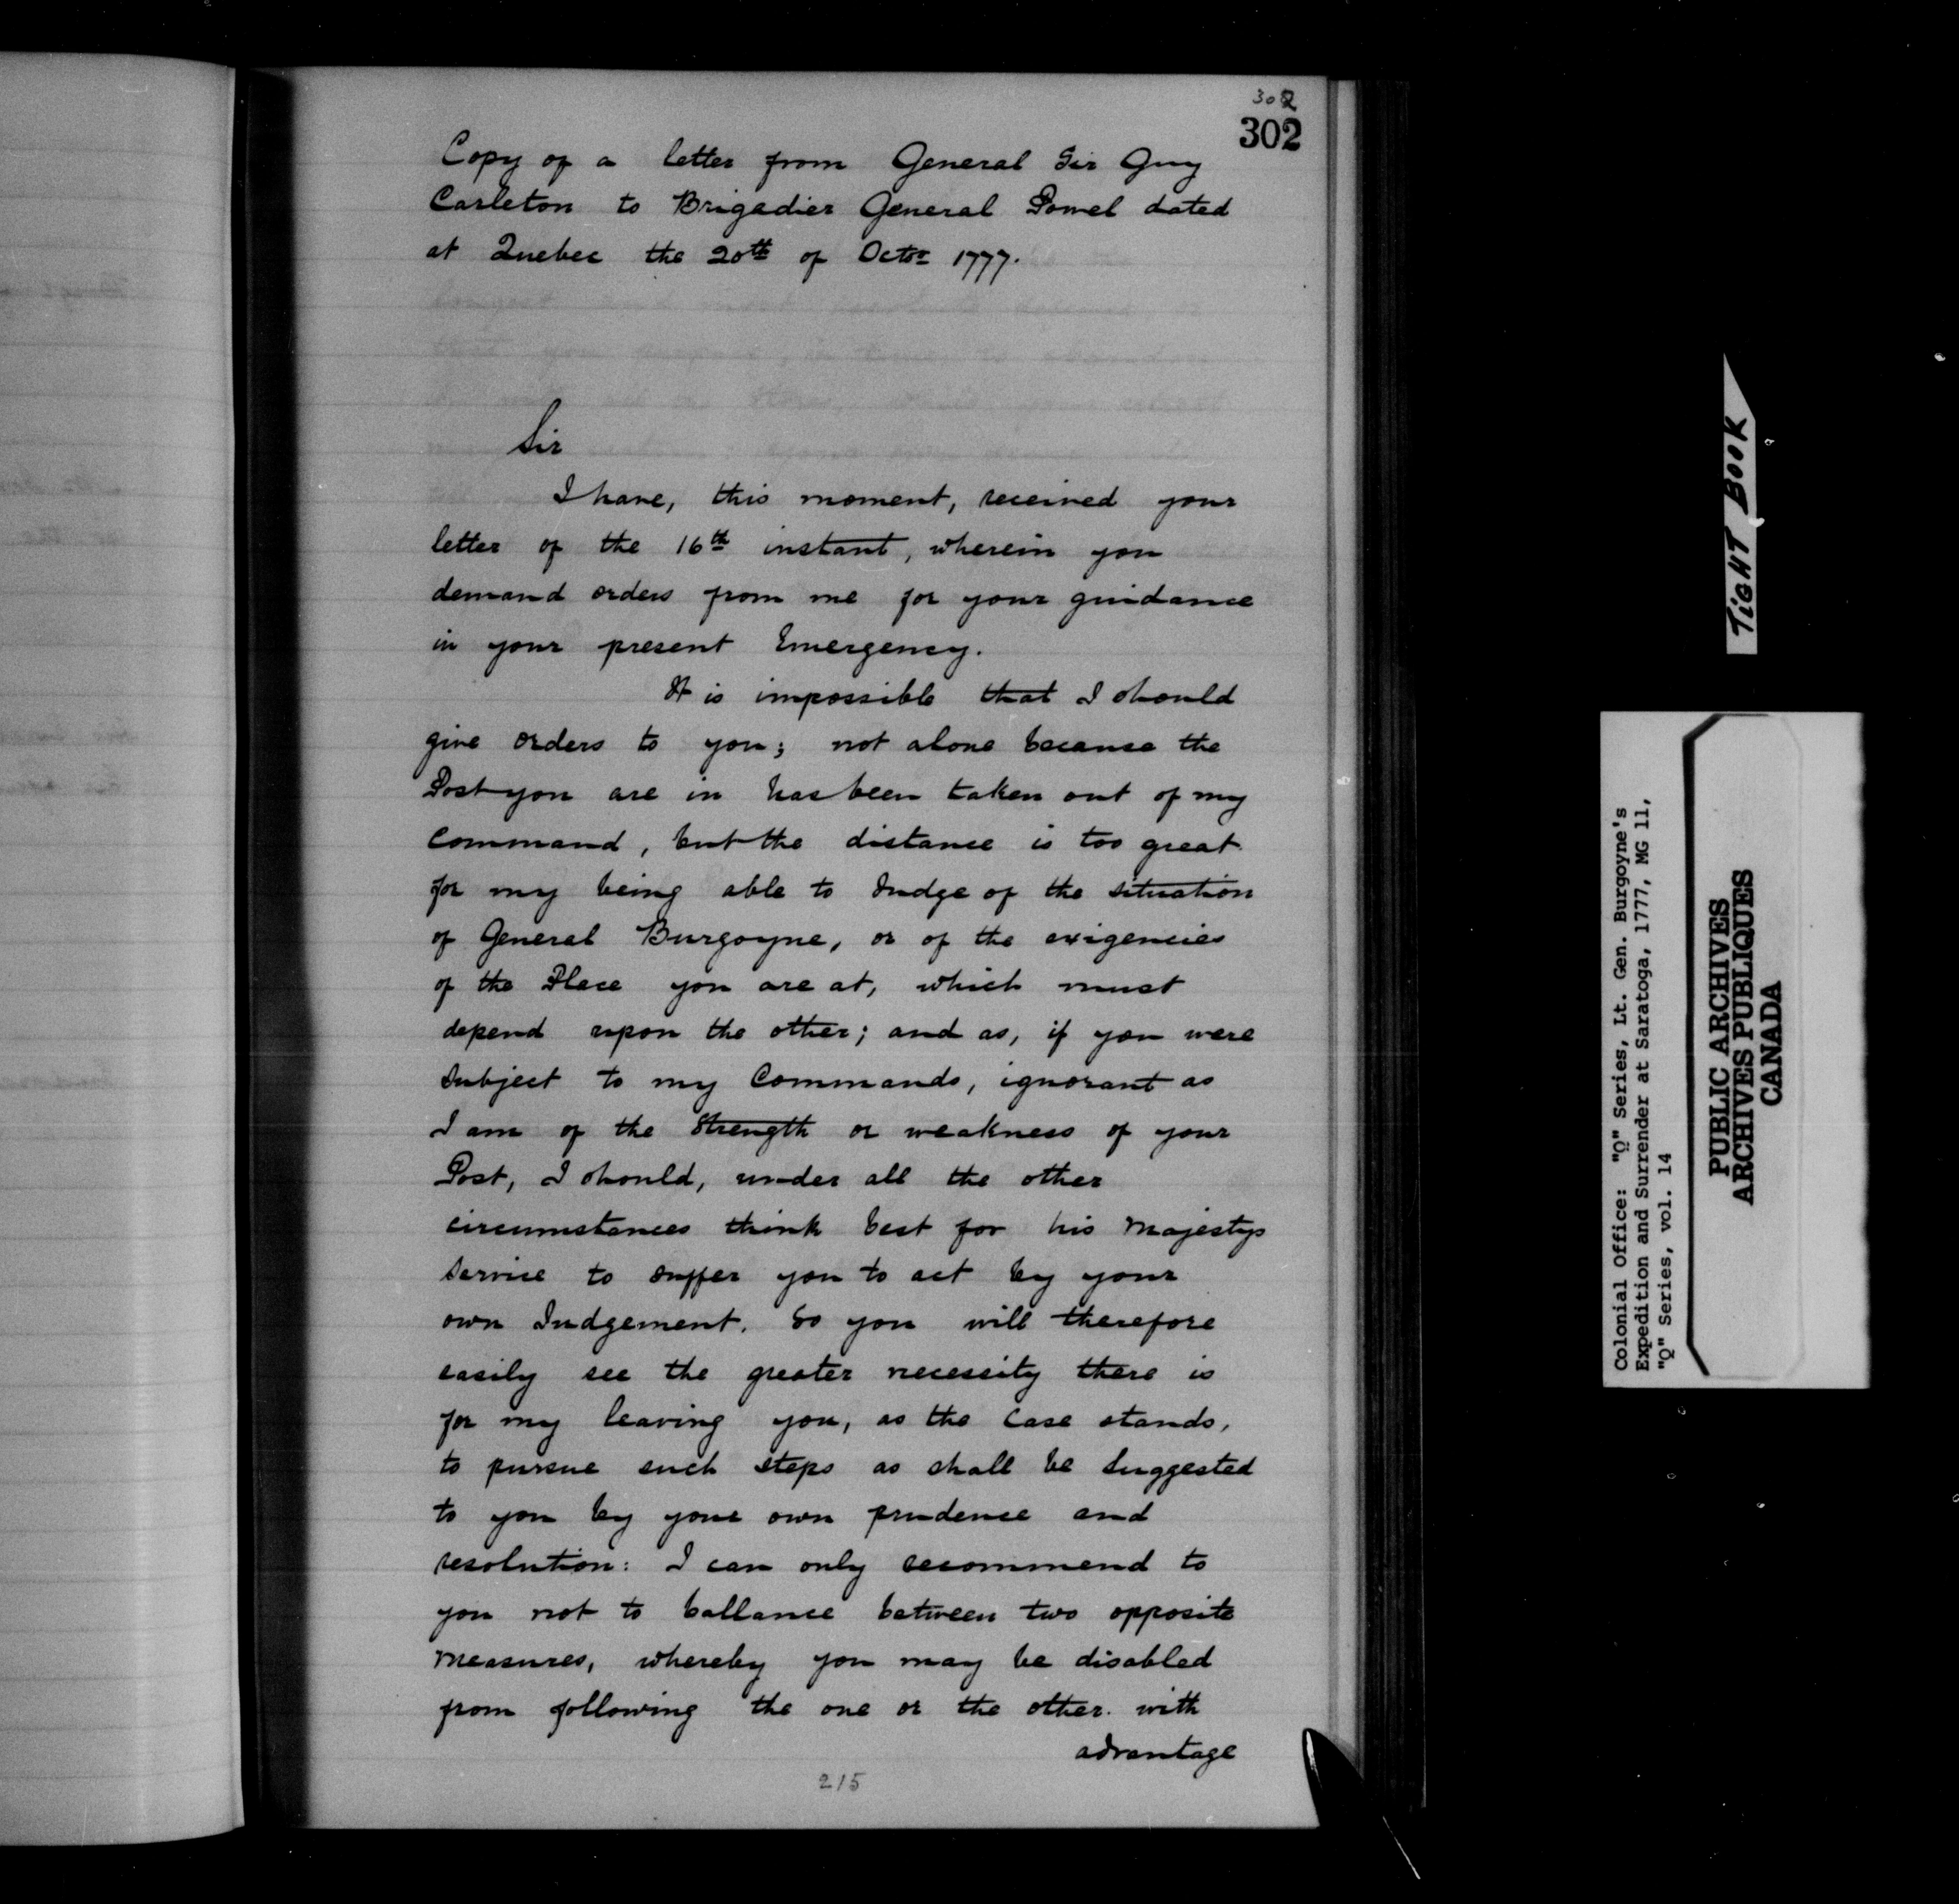 302
302
Copy of a letter from General Sir Guy
Carleton to Brigadier General Powel dated
at Quebec the 20th of Octor 1777.
Sir
I have, this moment, received your
letter of the 16th instant, wherein you
demand orders from me for your guidance
in your present Emergency.
It is impossible that I should
give orders to you; not alone because the
Post you are in has been taken out of my
Command, but the distance is too great
for my being able to Judge of the situation
of General Burgoyne, or of the exigencies
of the Place you are at, which must
depend upon the other; and as, if you were
Subject to my Commands, ignorant as
I am of the Strength or weakness of your
Post, I should, under all the other
circumstances think best for his Majestys
Service to suffer you to act by your
own Judgement. So you will therefore
easily see the greater necessity there is
for my leaving you, as the Case stands,
to pursue such steps as shall be Suggested
to you by your own prudence and
resolution: I can only recommend to
you not to ballance between two opposite
Measures, whereby you may be disabled
from following the one or the other. with
advantage
215
TIGHT BOOK
Colonial Office: "Q" Series, Lt. Gen. Burgoyne's
Expedition and Surrender at Saratoga, 1777, MG 11,
"Q" Series, vol. 14
PUBLIC ARCHIVES
ARCHIVES PUBLIQUES
CANADA